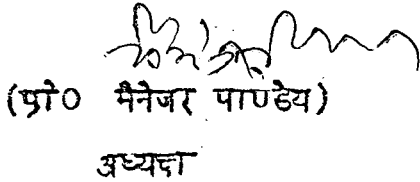 (प्रो० मैनेजर पाण्डेय)
अध्यक्ष